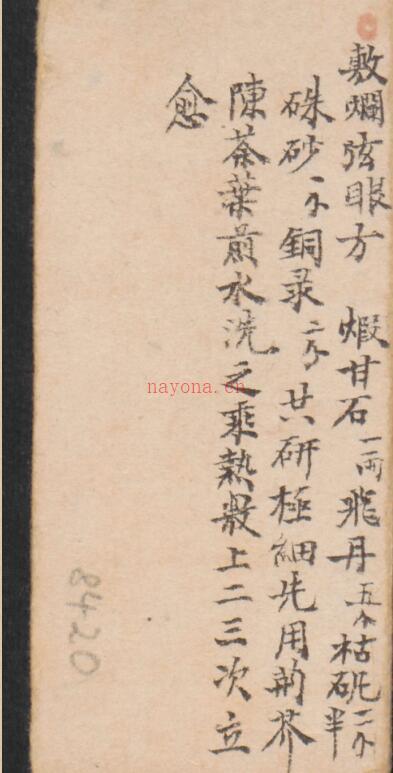 敷爛弦眼方　煆甘石一兩飛丹五分枯矾二分半
硃砂一分銅录二分共研極細先用荊芥
陳茶葉煎水洗之乘熱敷上二三次立
愈
nayona.cn
8420